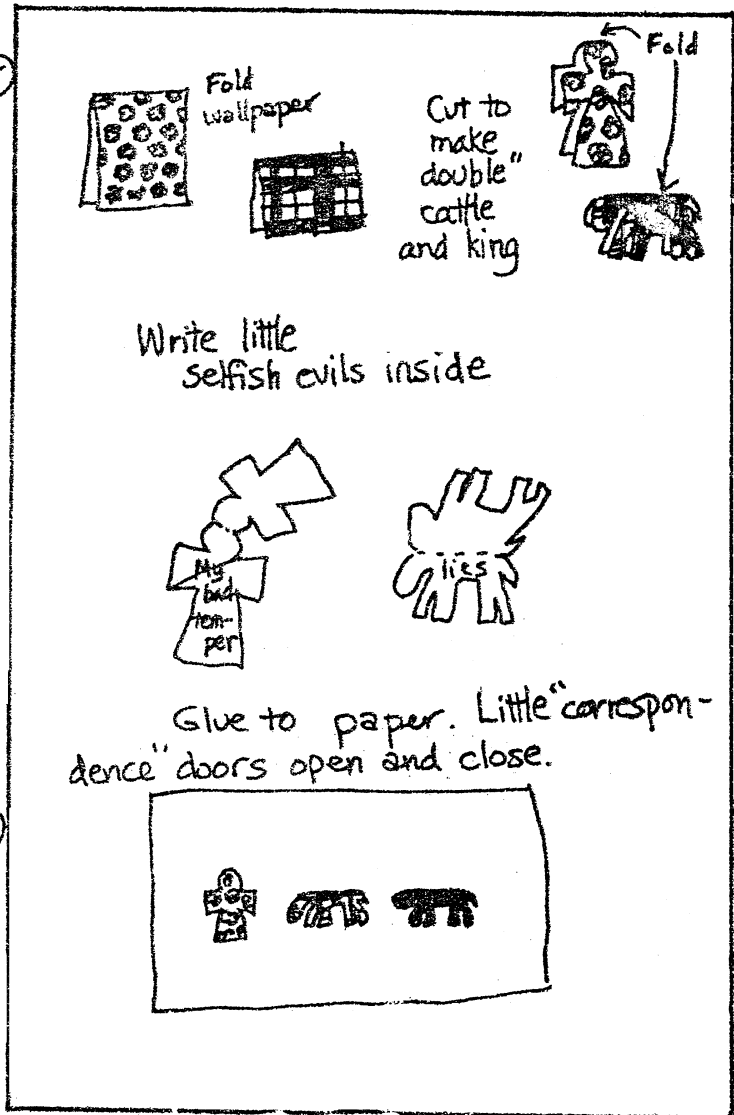 Fold
wallpaper
Cut to
make
double"
cattle
and king
Fold
Write little
selfish evils inside
My
bad
tem-
per
lies
Glue to paper. Little "correspon-
dence" doors open and close.